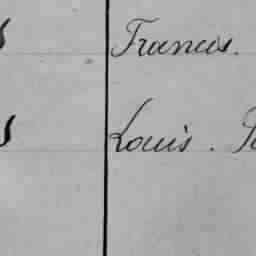 Francis.
Louis.